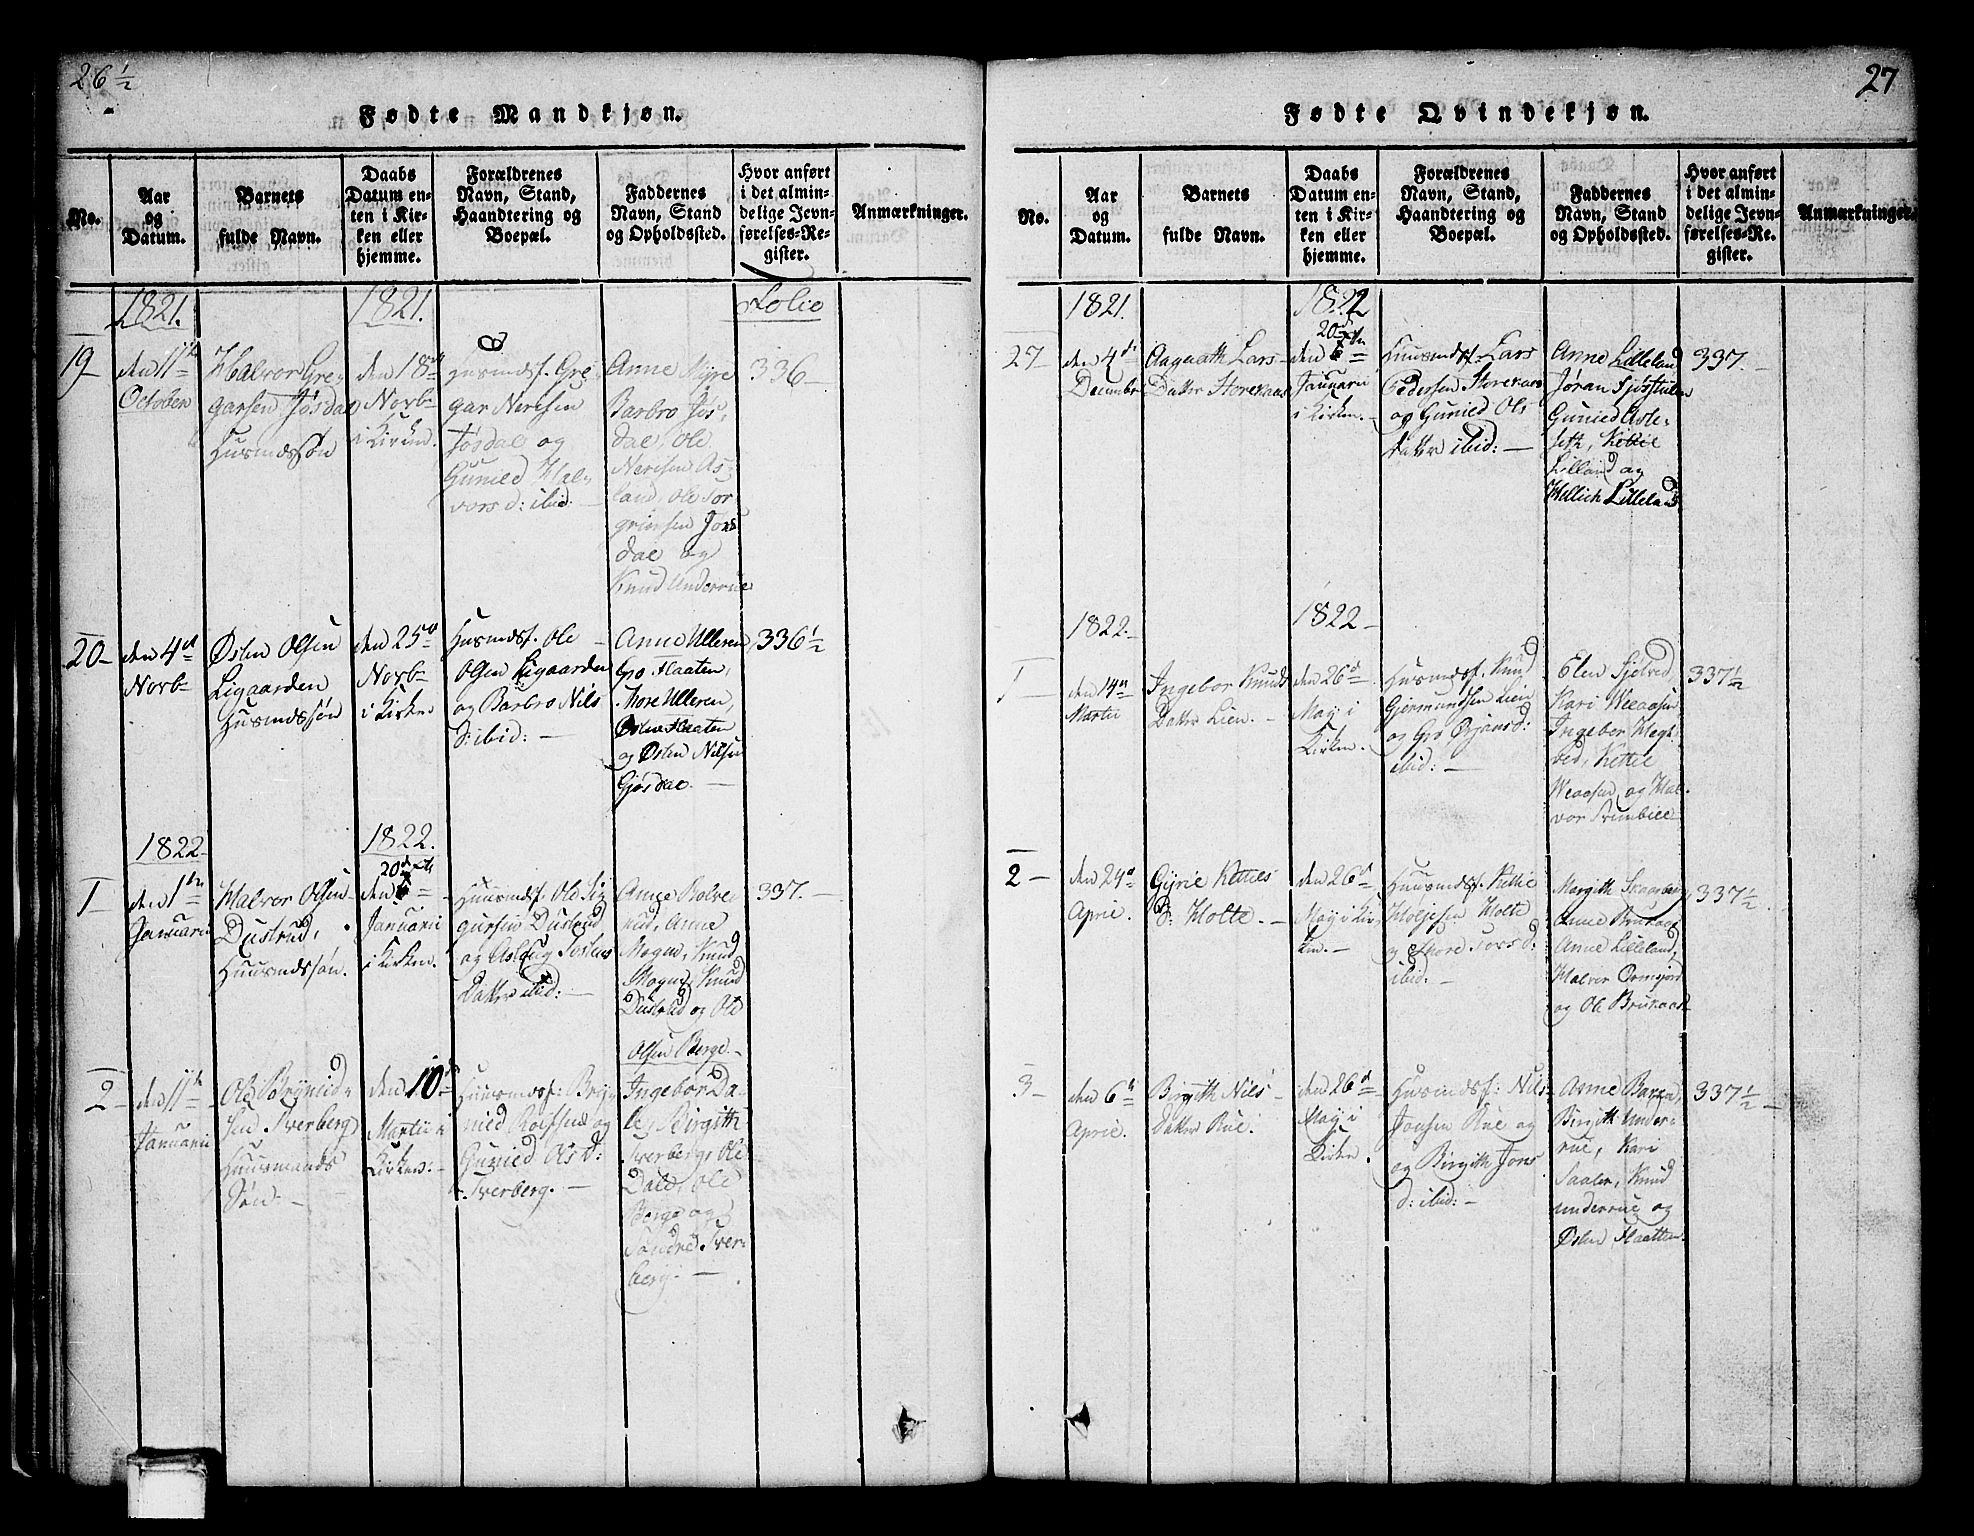 26 1/2
Fødte Mandkjøn.
No.
Aar
og
Datum.
Barnets
fulde Navn.
Daabs
Datum en-
ten i Kir-
ken eller
hjemme.
Forældrenes
Navn, Stand,
Haandtering og
Boepæl.
Faddernes
Navn, Stand
og Opholdssted.
Hvor anført
i det almin-
delige Jevn-
førelses-Re-
gister.
Anmærkninger.
1821.
1821.
Folio
19
den 11te
October
Halvor Gre-
garsen Jøsdal
Husmdssøn
den 18de
Novbr
i Kirken.
Husmdsf. Gre-
gar Nerisen
Jøsdal og
Gunild Hal-
vorsd: ibid:
Anne
Barbro Jøs-
dal, Ole
Nerisen As-
land, Ole Tor
grimsen
dal og
Knud Underrue
336
20
den 4de
Novbr
Østen Olsen
Ligaarden
Husmdssøn
den 25de
Novbr
i Kirken
Husmdsf. Ole
Olsen Ligaarden
og Barbro Nils
d: ibid:
Anne Ulleren
Gro Flaaten,
Thore Ulleren,
Østen Flaaten
og Østen Nilsen
Gjøsdal.
336 1/2
1822
1822.
1
den 1te
Januarii
Halvor Olsen
Dustrud,
Huusmdssøn.
20de
den
Januarii
i Kirken.
Huusmdsf. Ole Si-
gursen Dustrud
og Aslaug Tostens
Datter ibid:
Anne
Anne
Mogen, Knud
Mogen, Knud
Dustrud og Ole
Olsen Berge.
337.
2
den 11te
Januarii
Ole Brÿnild-
sen Tverberg
Huusmands
Søn
den 10de
Martii i
Kirken:
Huusmdsf: Brÿ-
nild Rolfsen og
Gunild Olsd:
Tverberg.
Ingebor Da-
le, Birgith
Tverberg, Ole
Dale, Ole
Berge og
Søndre Tver-
berg.
27
Fødte Qvindekjøn.
No.
Aar
og
Datum.
Barnets
fulde Navn.
Daabs
Datum en-
ten i Kir-
ken eller
hjemme.
Forældrenes
Navn, Stand,
Haandtering og
Boepæl.
Faddernes
Navn, Stand
og Opholdssted.
Hvor anført
i det almin-
delige Jevn-
førelses-Re-
gister.
Anmærkninger.
1821.
1822
27
den 4de
December
Aagaath Lars-
Datter Storekaas
20de
den
Januarii
i Kirken.
Huusmdsf. Lars
Pedersen Storekaas
og Gunild Ols
datter ibid:
Anne Lilleland
Jøran Sjøstulen
Gunild Asle-
seth, Kettil
Lilland og
Kettil Lilleland
337.
1822.
1822
1
den 14de
Martii
Ingebor Knuds
Datter Lien.
den 26de
Maÿ i
Kirken.
Husmdsf. Knud
Gjermundsen Lien
og Gro Ørjansd:
ibid:
Elen Sjølved,
Kari Weaasen
Ingebor Hegt-
ved, Kettil
Weaasen, og Hal-
vor
337 1/2
2
den 24de
April.
Gÿrie Kettils
D: Holte.
den 26de
Maÿ i Kir-
ken.
Huusmdsf. Kettil
Holte
og Thore Torsd:
ibid.
Margith Skagberg,
Anne Brukaas
Anne Lilleland,
Halvor Ormgjord
og Ole Brukaas
337 1/2.
3
den 6te
April.
Birgith Nils
Datter Rue.
den 26de
Maÿ i
Kirken.
Husmdsf: Nils
Jonsen Rue og
og Birgith Jons
d: ibid:
Anne Baren,
Birgith Under-
rue, Kari
Saalen, Knud
underrue og
Østen Flaatten.
337 1/2